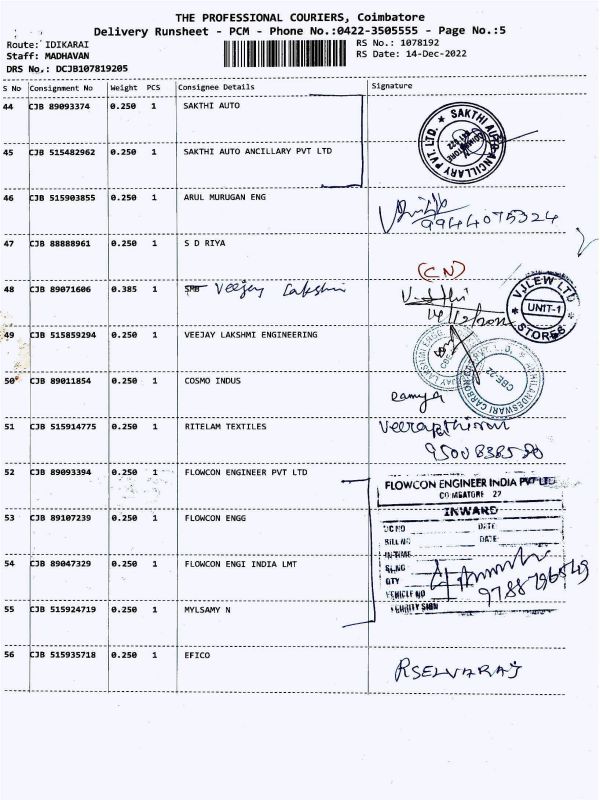 THE PROFESSIONAL COURIERS, Coimbatore
Delivery Runsheet - PCM - Phone No.:0422-3505555 - Page No.:5
Route: IDIKARAI
RS No.: 1078192
Staff: MADHAVAN
RS Date: 14-Dec-2022
DRS No.: DCJB107819205
S No Consignment No Weight PCS Consignee Details Signature
44 CJB 89093374 0.250 1 SAKTHI AUTO
SAKTHI AUTO ANCILLARY PVT. LTD.
45 CJB 515482962 0.250 1 SAKTHI AUTO ANCILLARY PVT LTD
46 CJB 515903855 0.250 1 ARUL MURUGAN ENG
9944075324
47 CJB 88888961 0.250 1 S D RIYA
(CN)
48 CJB 89071606 0.385 1 SMB Veejay Lakshmi
14/12/2022
VJLEW LTD
UNIT-1
STORES
49 CJB 515859294 0.250 1 VEEJAY LAKSHMI ENGINEERING
50 CJB 89011854 0.250 1 COSMO INDUS
CBE-22
Ramya
51 CJB 515914775 0.250 1 RITELAM TEXTILES
9500838580
52 CJB 89093394 0.250 1 FLOWCON ENGINEER PVT LTD
FLOWCON ENGINEER INDIA PVT LTD
COIMBATORE 22
INWARD
53 CJB 89107239 0.250 1 FLOWCON ENGG
DC NO DATE
BILL NO DATE
IN TIME
54 CJB 89047329 0.250 1 FLOWCON ENGI INDIA LMT
SL.NO
QTY
VEHICLE NO
9788796549
55 CJB 515924719 0.250 1 MYLSAMY N
SECURITY SIGN
56 CJB 515935718 0.250 1 EFICO
R SELVARAJ